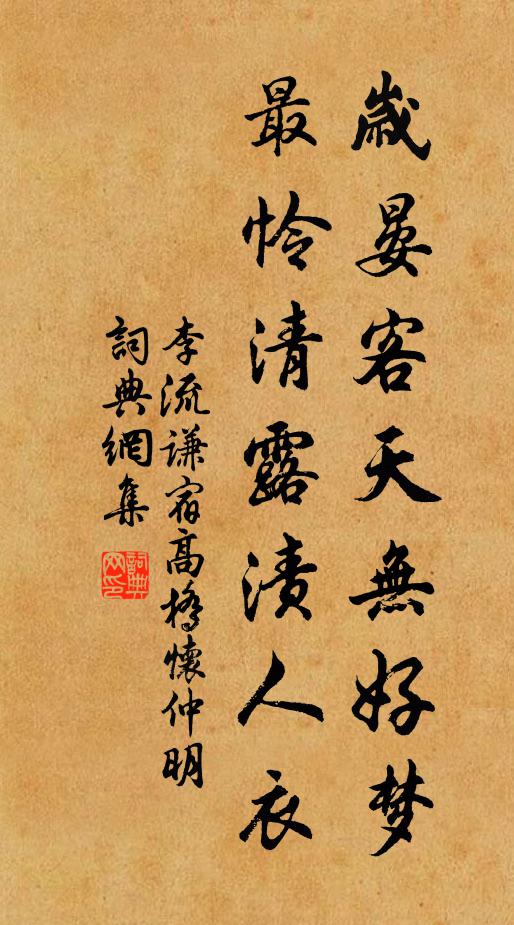 歲晏客天無好梦
最怜清露漬人衣
李流謙宿高橋懷仲明
詞典網集
詞典網印